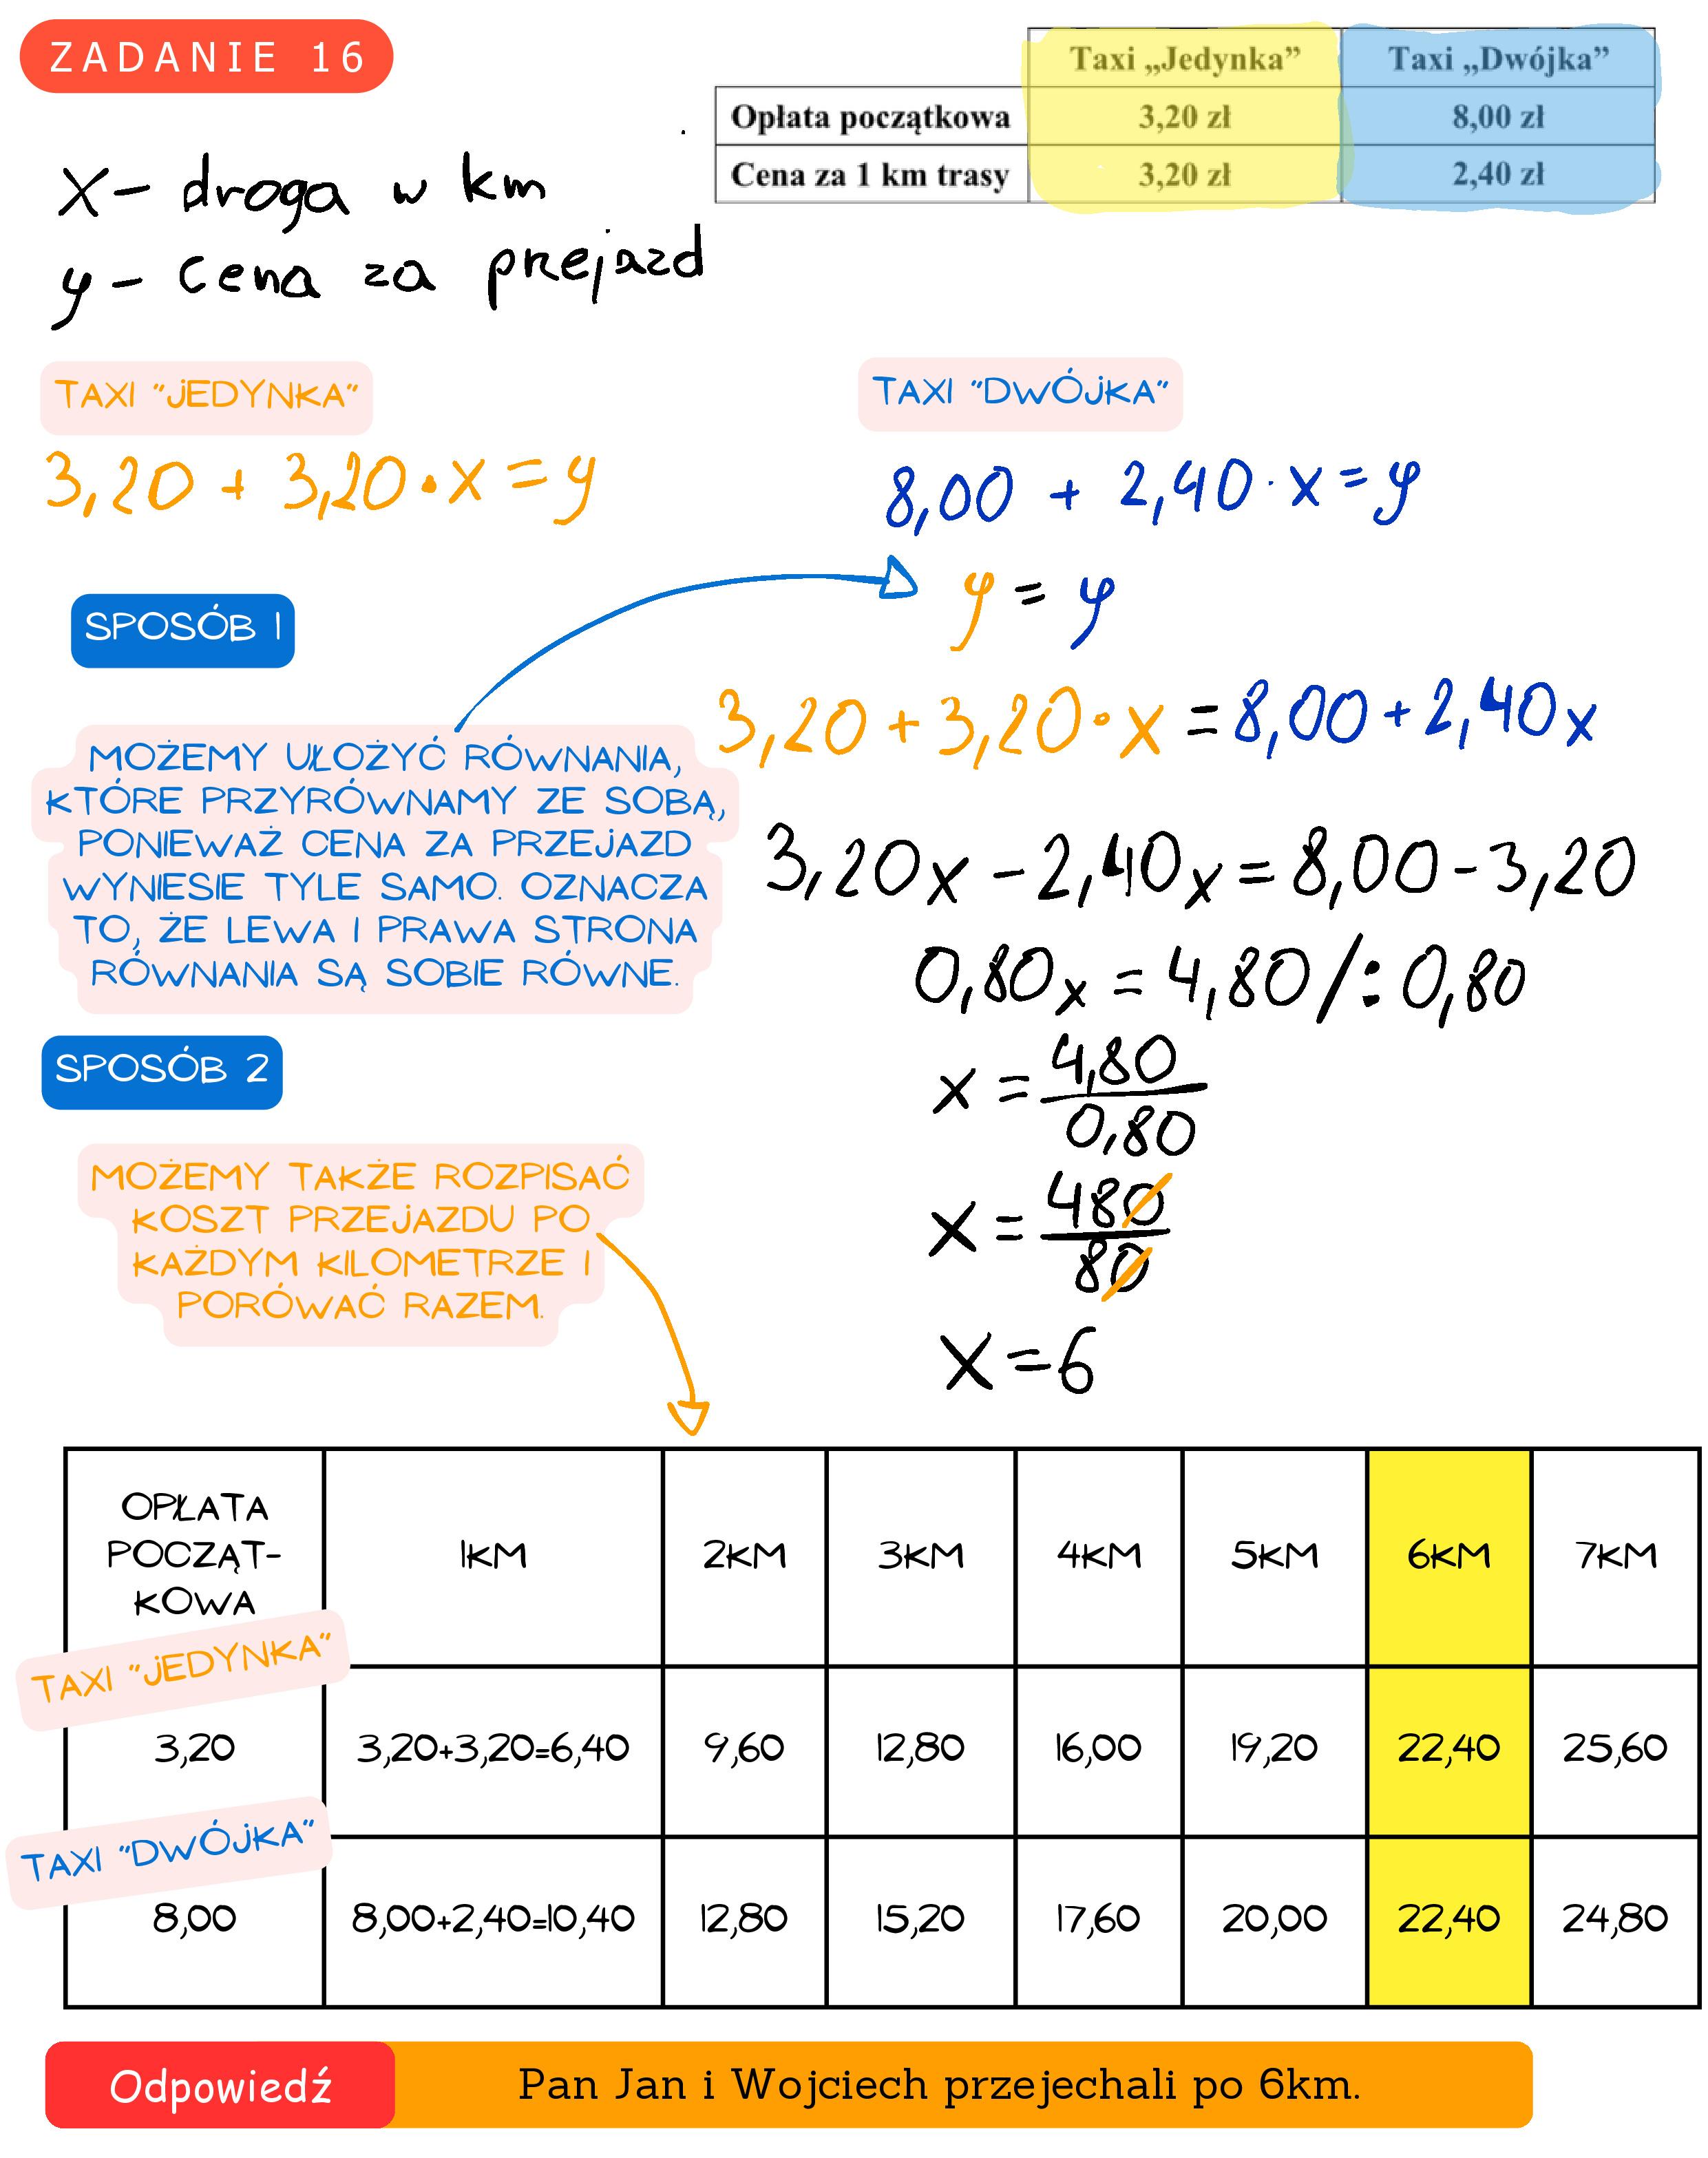 ZADANIE 16
Taxi „Jedynka” Taxi „Dwójka”
Opłata początkowa 3,20 zł 8,00 zł
Cena za 1 km trasy 3,20 zł 2,40 zł
x - droga w km
y - cena za przejazd
TAXI "JEDYNKA"
3,20 + 3,20 · x = y
TAXI "DWÓJKA"
8,00 + 2,40 · x = y
SPOSÓB 1
MOŻEMY UŁOŻYĆ RÓWNANIA,
KTÓRE PRZYRÓWNAMY ZE SOBĄ,
PONIEWAŻ CENA ZA PRZEJAZD
WYNIESIE TYLE SAMO. OZNACZA
TO, ŻE LEWA I PRAWA STRONA
RÓWNANIA SĄ SOBIE RÓWNE.
y = y
3,20 + 3,20 · x = 8,00 + 2,40x
3,20x - 2,40x = 8,00 - 3,20
0,80x = 4,80 /: 0,80
x = 4,80
0,80
x = 480
80
x = 6
SPOSÓB 2
MOŻEMY TAKŻE ROZPISAĆ
KOSZT PRZEJAZDU PO
KAŻDYM KILOMETRZE I
PORÓWAĆ RAZEM.
OPŁATA
POCZĄT-
KOWA
1KM 2KM 3KM 4KM 5KM 6KM 7KM
TAXI "JEDYNKA"
3,20 3,20+3,20=6,40 9,60 12,80 16,00 19,20 22,40 25,60
TAXI "DWÓJKA"
8,00 8,00+2,40=10,40 12,80 15,20 17,60 20,00 22,40 24,80
Odpowiedź Pan Jan i Wojciech przejechali po 6km.